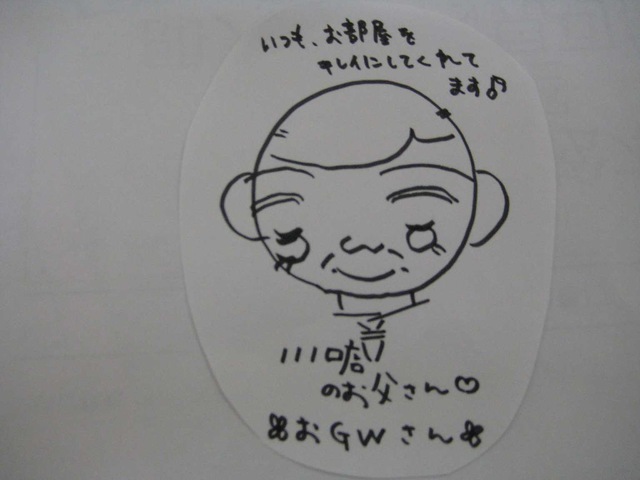 いつも、お部屋を
キレイにしてくれて
ます♪
川口店
のお父さん♡
❀おGWさん❀